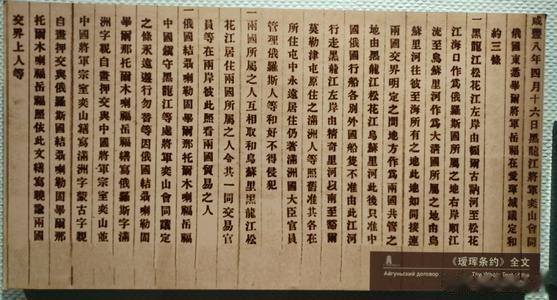 咸豐八年四月十六日黑龍江將軍奕山會同
俄國東悉畢爾將軍岳福在愛琿城議定和
約三條
一黑龍江松花江左岸由額爾古訥河至松花
江海口作為俄羅斯國所屬之地右岸順江
流至烏蘇里河作為大清國所屬之地由烏
蘇里河往彼至海所有之地此地如同接連
兩國交界明定之間地方作為兩國共管之
地由黑龍江松花江烏蘇里河此後只准中
俄國行船各別外國船隻不准由此江河
行走黑龍江左岸由精奇里河以南至豁爾
莫勒津屯原住之滿洲人等照舊准其各在
所住屯中永遠居住仍著滿洲國大臣官員
管理俄羅斯人等和好不得侵犯
一兩國所屬之人互相取和烏蘇里黑龍江松
花江居住兩國所屬之人令其一同交易官
員等在兩岸彼此照看兩國貿易之人
一俄國結聶喇勒固畢爾那托爾木喇福岳福
中國鎮守黑龍江等處將軍奕山會同議定
之條永遠遵行勿替等因俄國結聶喇勒固
畢爾那托爾木喇福岳福繕寫俄羅斯字滿
洲字親自畫押交與中國將軍宗室奕山並
中國將軍宗室奕山繕寫滿洲字蒙古字親
自畫押交與俄羅斯國結聶喇勒固畢爾那
托爾木喇福岳福照依此文繕寫曉諭兩國
交界上人等
《瑷珲条约》全文
Айгуньский договор
The Whole Text of the